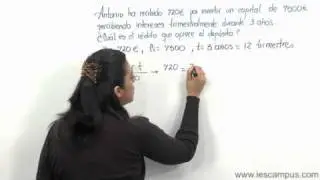 Antonio ha recibido 720€ por invertir un capital de 7500€
percibiendo intereses trimestralmente durante 3 años.
¿Cuál es el rédito que ofrece el depósito?
720€, C = 7500, t = 3 años = 12 trimestres
t → 720 =
www.iescampus.com